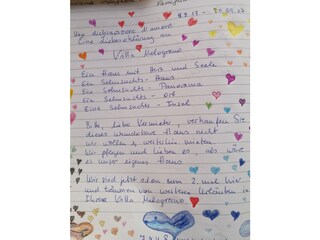 8.9.23 - 20.09.23
Una dichiarazione d'amore
Eine Liebeserklärung an
Villa Melograno
Ein Haus mit Herz und Seele
Ein Sehnsuchts-Haus
Ein Sehnsuchts-Panorama
Ein Sehnsuchts-Ort
Eine Sehnsuchts-Insel
Bitte, liebe Vermieter, verkaufen Sie
dieses wunderbare Haus nicht
Wir wollen es weiterhin mieten
Wir pflegen und lieben es, als wäre
es unser eigenes Haus
Wir sind jetzt schon zum 2. mal hier
und träumen von weiteren Urlauben in
Ihrer Villa Melograno